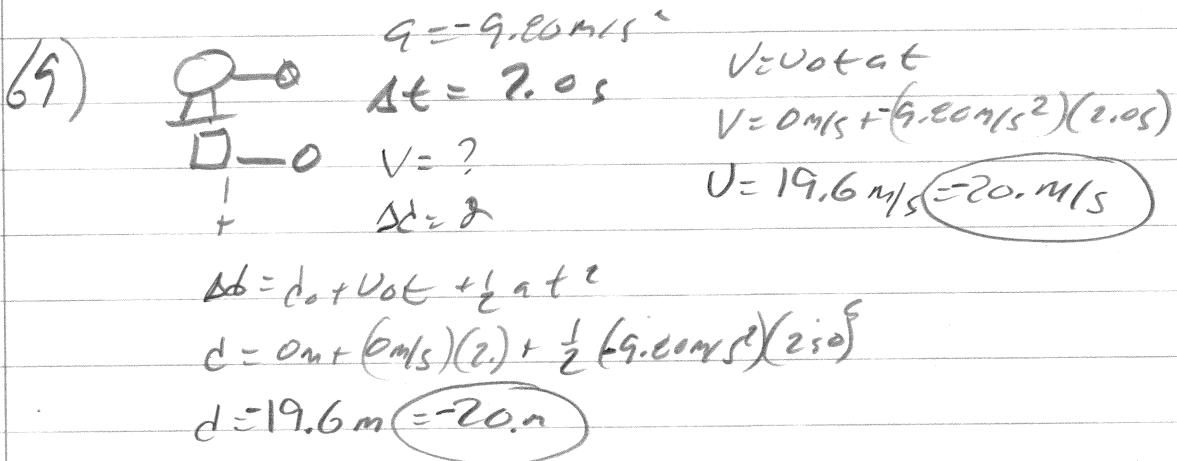 69)
a = -9.80 m/s²
Δt = 2.0 s
V = ?
Δd = ?
V = v₀ + at
V = 0 m/s + (-9.80 m/s²)(2.0s)
V = 19.6 m/s = -20. m/s
Δd = d₀ + v₀t + ½ at²
d = 0m + (0m/s)(2.) + ½ (-9.80 m/s²)(2.0)²
d = -19.6 m = -20. m